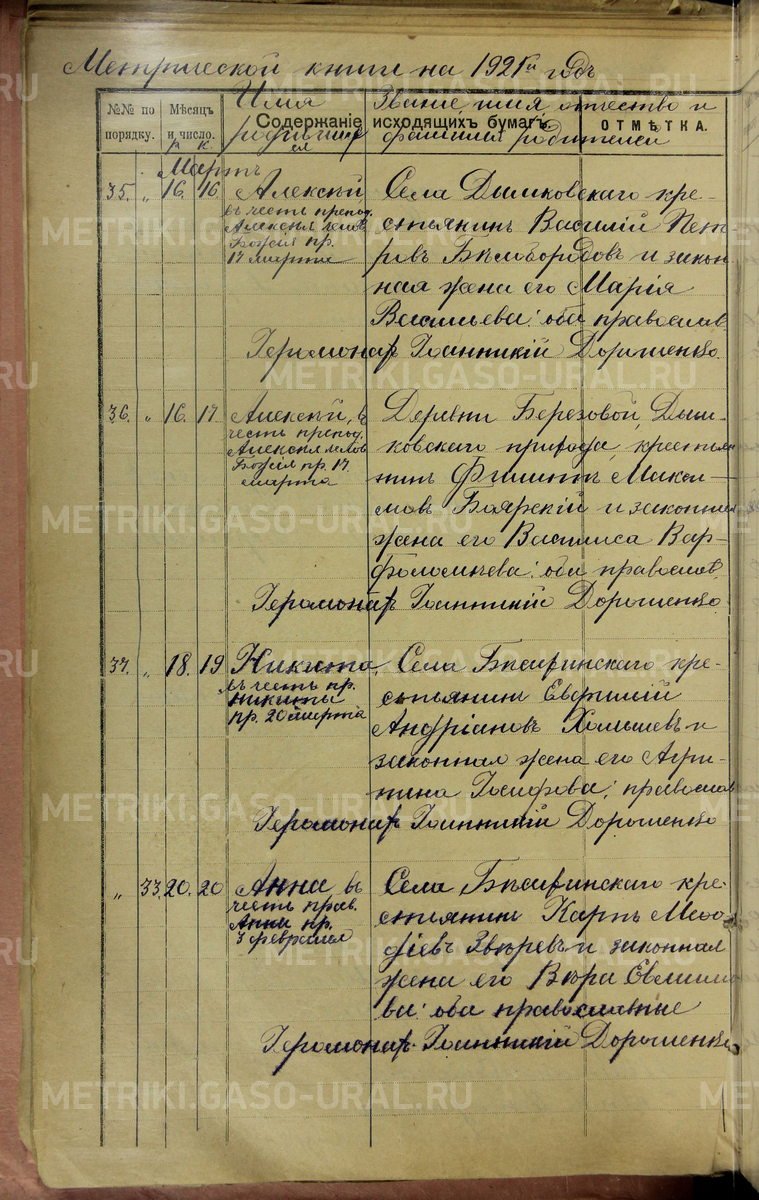 Метрической книги на 1921й годъ
№№ по порядку.
Мѣсяцъ и число.
р. к.
Содержаніе исходящихъ бумагъ.
ОТМѢТКА.
Имя родившихся
Званіе имя отчество и фамилия родителей
Мартъ
35. " 16. 16
Алексѣй,
въ честь препод.
Алексия челов.
Божія пр.
17 марта
Села Дымковскаго кре-
стьянинъ Василій Пет-
ровъ Бѣлобородовъ и закон-
ная жена его Марія
Васильева: оба православ.
Геромонахъ Іоанникій Дорошенко.
36. " 16. 17
Алексѣй, въ
честь препод.
Алексия челов.
Божія пр. 17.
марта
Деревни Березовой, Дым-
ковскаго прихода, крестья-
нинъ Филиппъ Макси-
мовъ Боярскій и законная
жена его Васиlиса Вар-
фоломѣева: оба православ.
Геромонахъ Іоанникій Дорошенко
37. " 18. 19
Никита,
въ честь пр.
Никиты
пр. 20 марта
Села Бѣ­линскаго кре-
стьянинъ Евфимій
Андріановъ и
законная жена его Агри-
пина Іосифова: православ.
Геромонахъ Іоанникій Дорошенко
" 33. 20. 20
Анна, въ
честь прав.
Анны пр.
3 февраля
Села кре-
стьянинъ Карпъ Меѳо-
діевъ Звѣревъ и законная
жена его Вѣра
ва: оба православные
Геромонахъ Іоанникій Дорошенко
METRIKI.GASO-URAL.RU